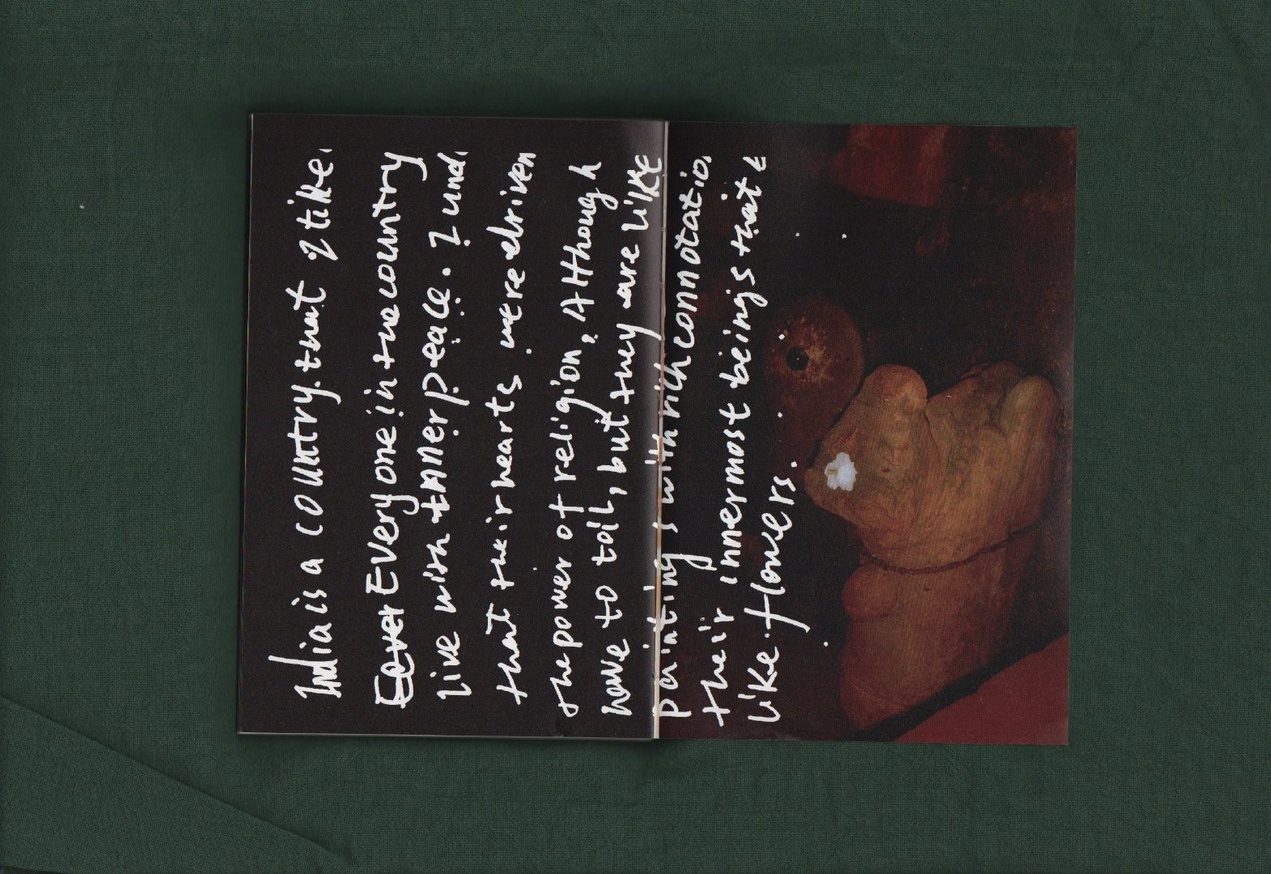 India is a country that I like.
Every one in the country
live with inner peace. I und
that their hearts were driven
the power of religion, Although
have to toil, but they are like
paintings with rich connotatio
their innermost beings that
like flowers.